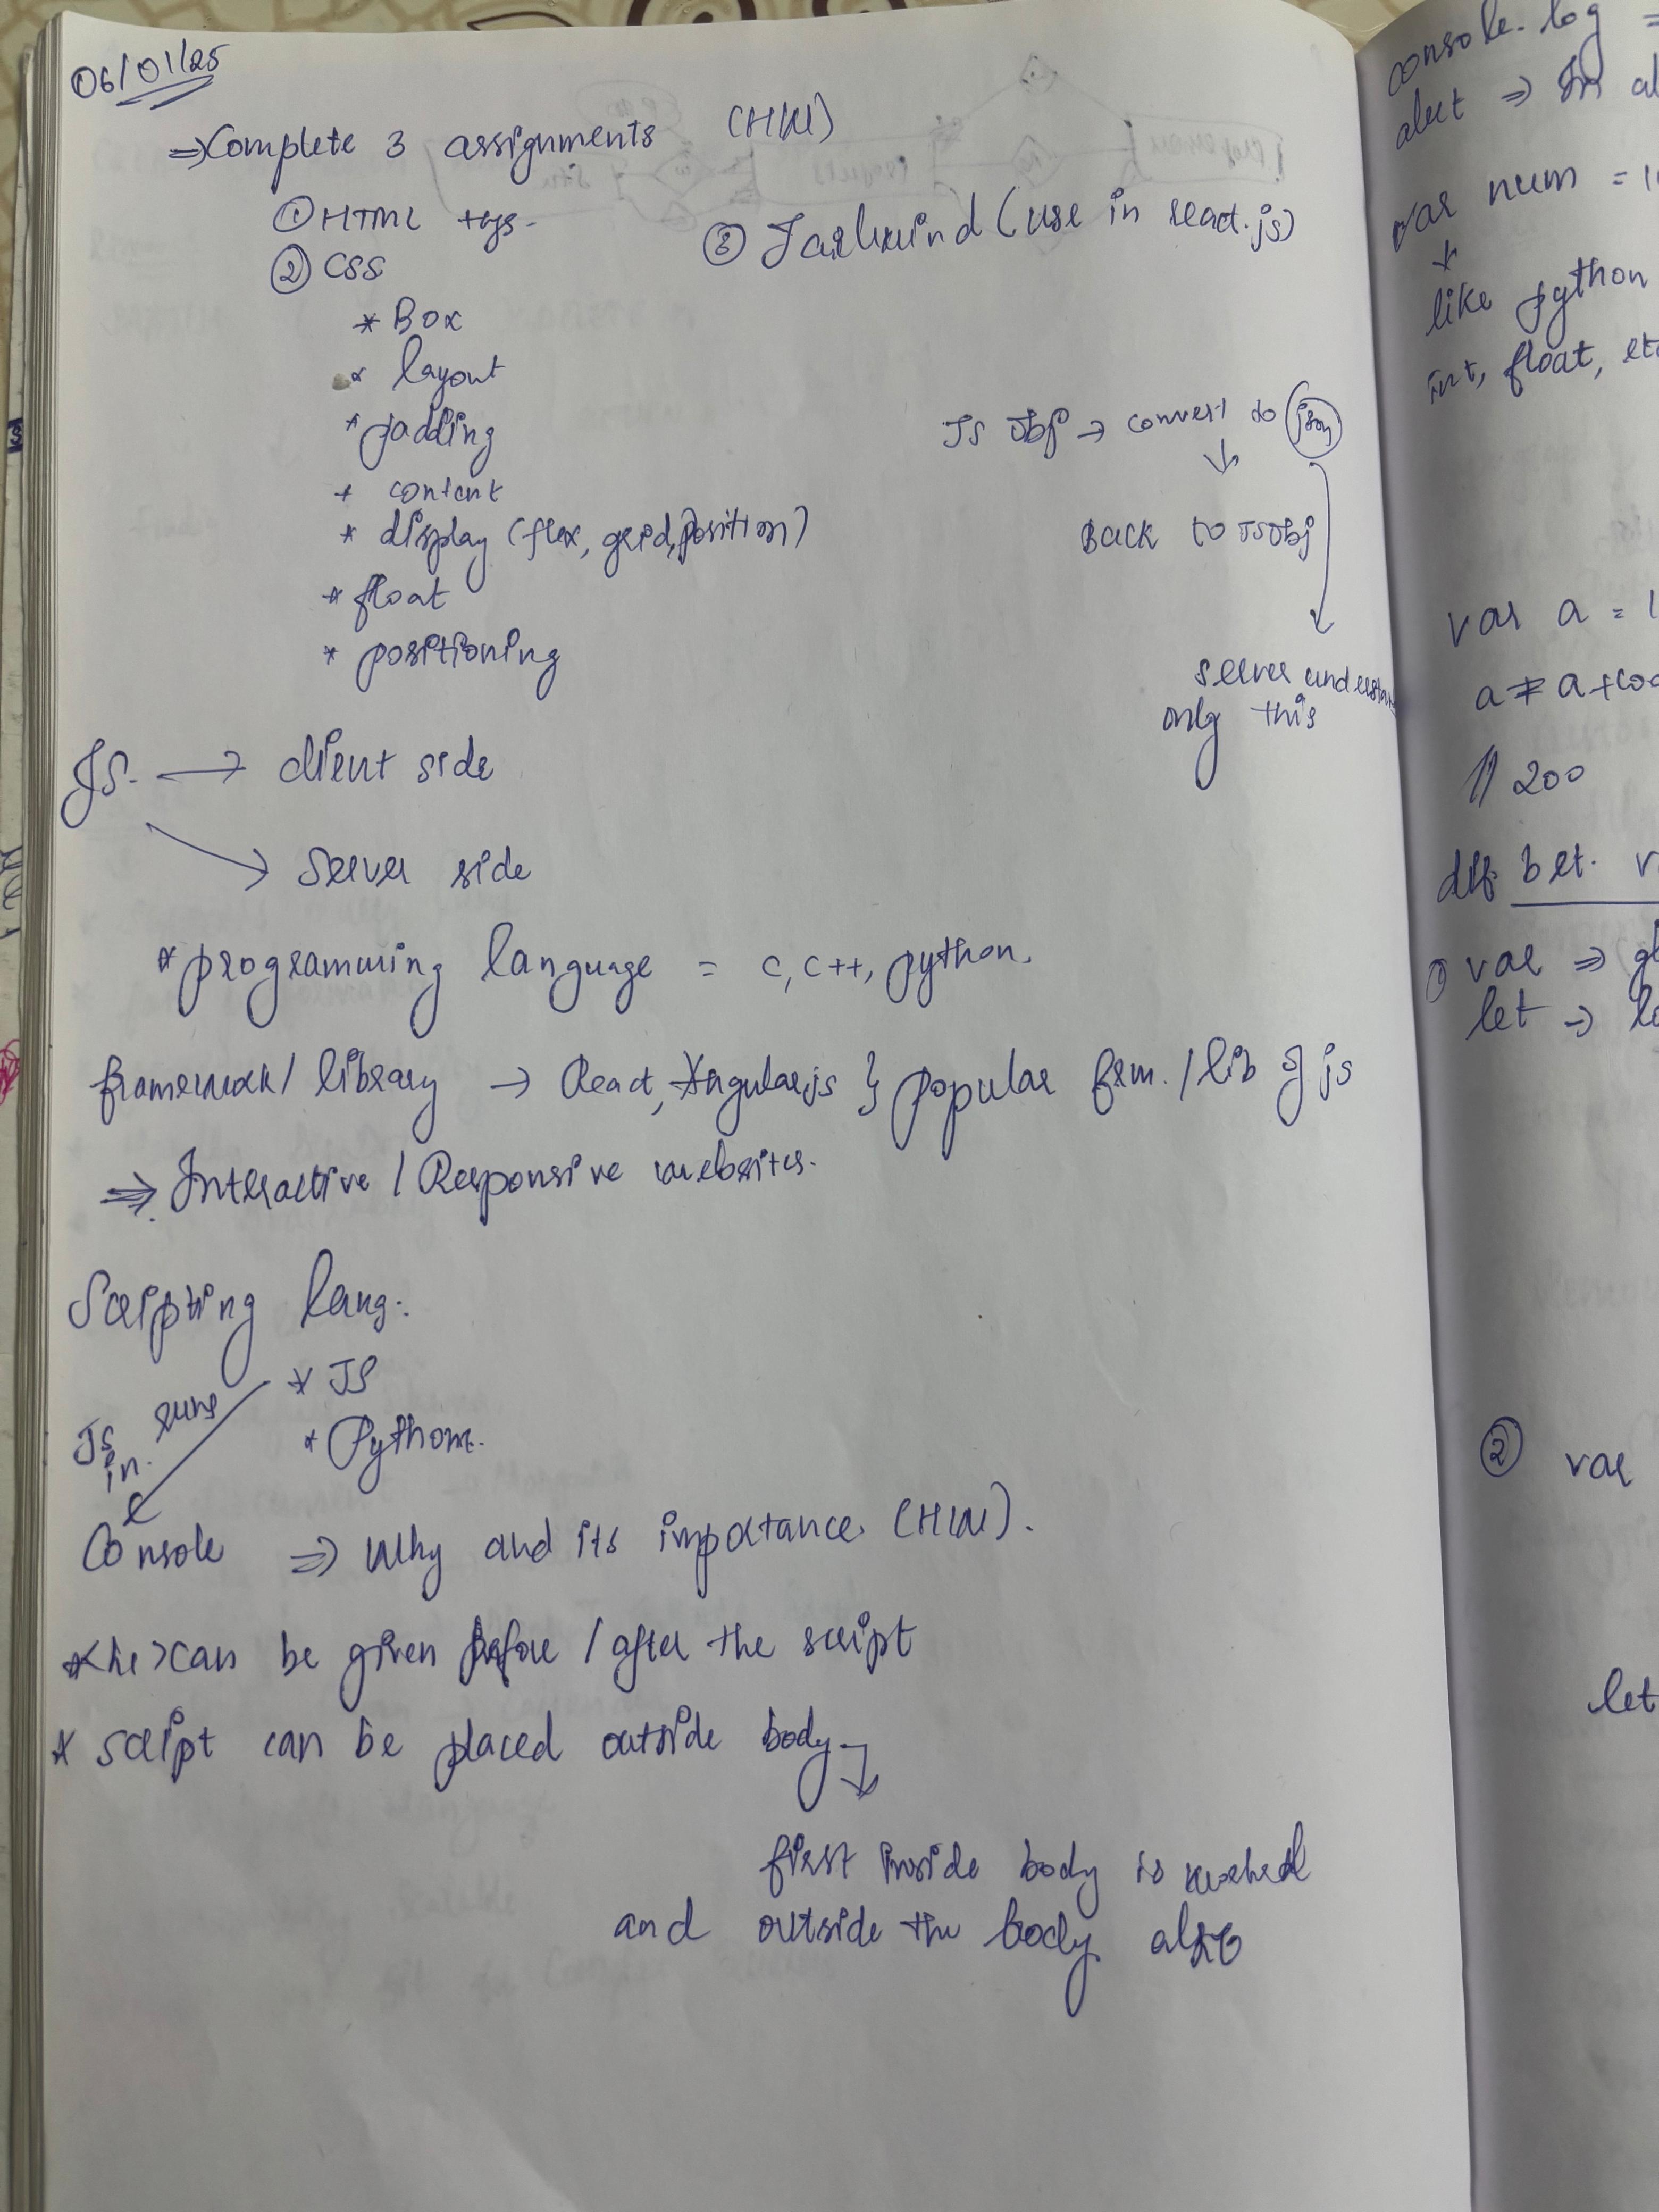 06/01/25
⇒ Complete 3 assignments (HW)
① HTML tags.
② CSS
③ Tailwind (use in react.js)
* Box
* layout
* padding
* content
* display (flex, grid, position)
* float
* positioning
JS Obj → convert to json
↓
Back to JSObj
server understan
only this
JS. → client side
→ Server side
* programming language = c, c++, python.
framework / library → React, Angularjs } popular frm. / lib of js
⇒ Interactive / Responsive websites.
Scripting lang:
* JS
* Python.
JS runs
in.
Console ⇒ Why and its importance (HW).
* can be given before / after the script
* script can be placed outside body
first inside body is
and outside the body also
console.log =
alert ⇒ In al
var num = 1
↓
like python
int, float, etc
var a = 1
a = a +
// 200
diff bet. v
① var ⇒ gl
let → lo
② var
let